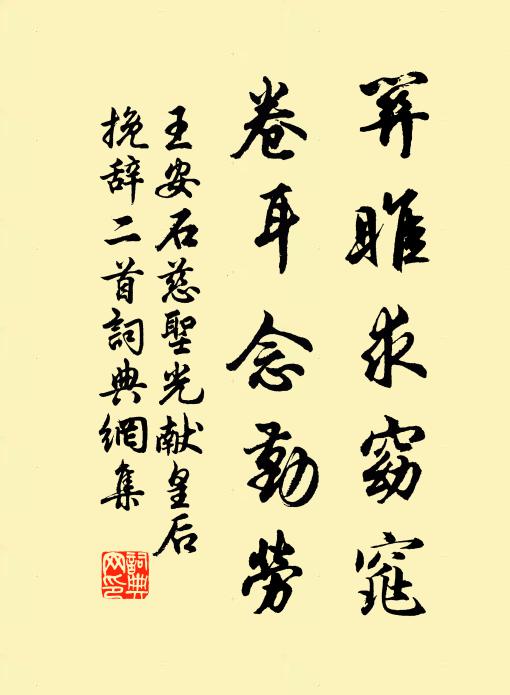 關雎求窈窕
卷耳念勤勞
王安石慈聖光献皇后
挽辞二首詞典網集
詞典网印